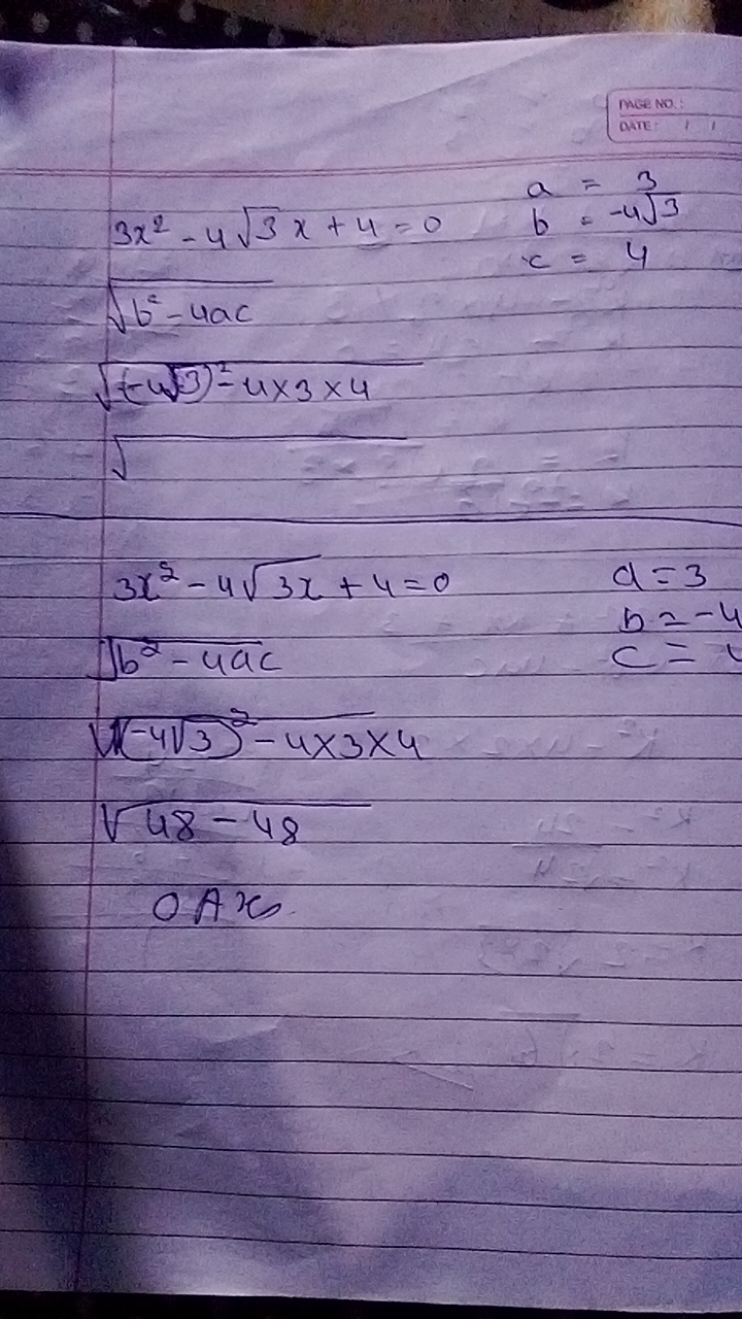 PAGE NO.:
DATE: / /
3x² - 4√3 x + 4 = 0
a = 3
b = -4√3
c = 4
√b² - 4ac
√(-4√3)² - 4×3×4
√
3x² - 4√3x + 4 = 0
a = 3
b = -4
c =
√b² - 4ac
√(-4√3)² - 4×3×4
√48 - 48
0